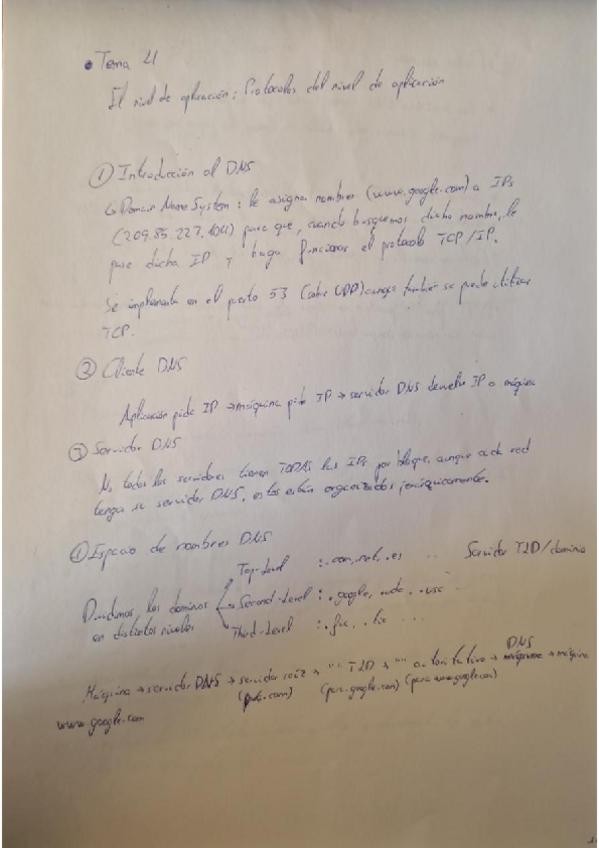 • Tema 4
El nivel de aplicación: Protocolos del nivel de aplicación
① Introducción al DNS
↳ Domain Name System: le asigna nombres (www.google.com) a IPs
(209.85.227.104) para que, cuando busquemos dicho nombre, le
pase dicha IP y haga funcionar el protocolo TCP/IP.
Se implementa en el puerto 53 (sobre UDP) aunque también se puede utilizar
TCP.
② Cliente DNS
Aplicación pide IP → máquina pide IP → servidor DNS devuelve IP a máquina
③ Servidor DNS
No todos los servidores tienen TODAS las IPs por bloque, aunque cada red
tenga su servidor DNS, estos están organizados jerárquicamente.
④ Espacio de nombres DNS
Top-Level : .com, .net, .es ... Servidor TLD/dominio
Dividimos los dominios Second-Level : .google, .usc
en distintos niveles Third-Level : ...
DNS
Máquina → servidor DNS → servidor raíz → " " TLD → " " autoritativo → → máquina
www.google.com (para .com) (para .google.com) (para www.google.com)